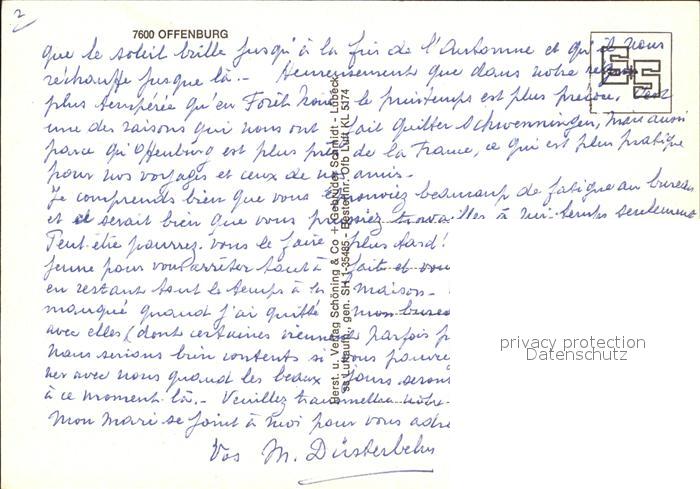 2
7600 OFFENBURG
que le soleil brille jusqu'à la fin de l'Automne et qu'il nous
réchauffe jusque là.- Heureusement que dans notre région
plus tempérée qu'en Forêt Noire le printemps est plus précoce. C'est
une des raisons qui nous ont fait quitter Schwenningen, mais aussi
parce qu'Offenburg est plus près de la France, ce qui est plus pratique
pour nos voyages et ceux de nos amis.-
Je comprends bien que vous éprouviez beaucoup de fatigue au bureau
et ce serait bien que vous puissiez travailler à mi-temps seulement
Peut-être pourrez-vous le faire plus tard!
jeune pour vous arrêter tout à fait et vou
en restant tout le temps à la maison.-
manqué quand j'ai quitté mon bureau
avec elles (dont certaines viennent parfois p
Nous serions bien contents si vous pouvie
ner avec nous quand les beaux jours seron
à ce moment là.- Veuillez transmettre notre
Mon Mari se joint à moi pour vous adre
Vos M. Düsterbehn
Herst. u. Verlag Schöning & Co + Gebrüder Schmidt - Lübeck
SH 1-35485 - Bestellnr. Ofb Luft KL 5174
E+S
privacy protection
Datenschutz